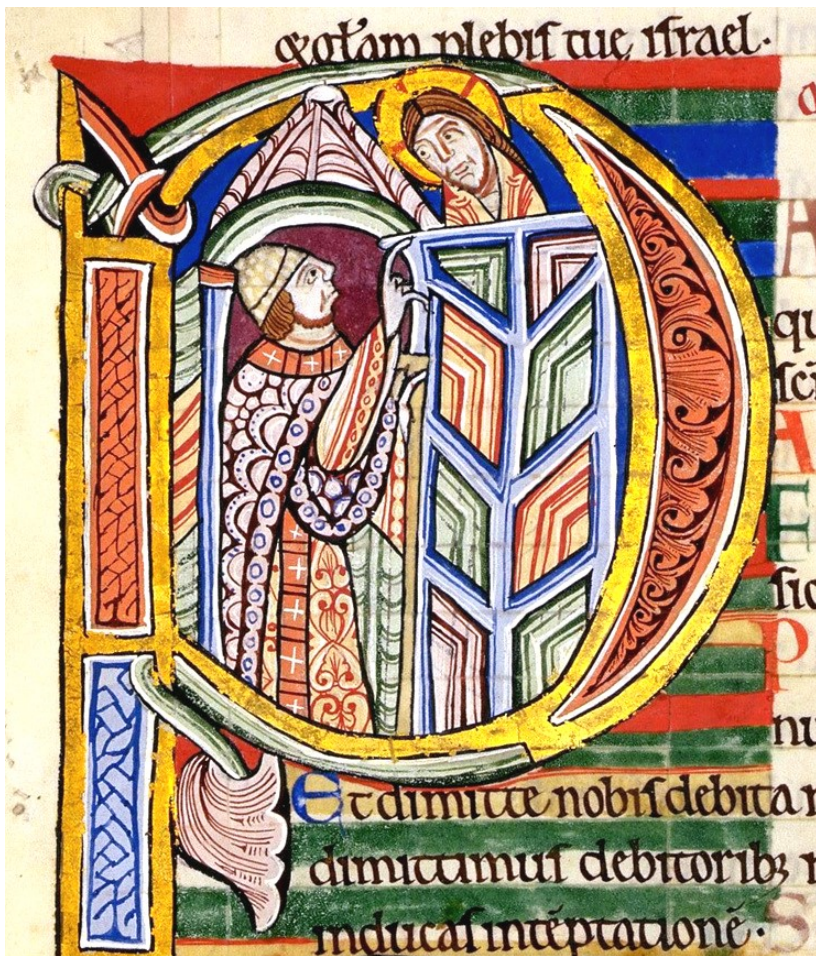 &gl̄am plebiſ tue iſrael·
A
qu
ſcī
A
F
ſic
P
nu
Et dimitte nobiſ debita n
dimittimuſ debitorib; n
inducaſ intēptationē· S